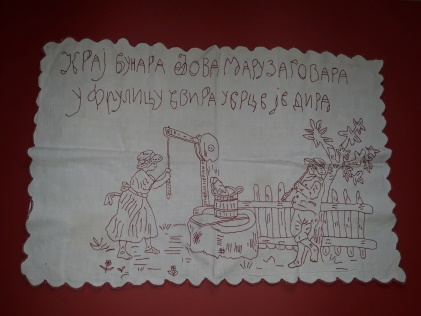 КРАЈ БУНАРА ЈОВА МАРУ ЗАГОВАРА
У ФРУЛИЦУ СВИРА У СРЦЕ ЈЕ ДИРА